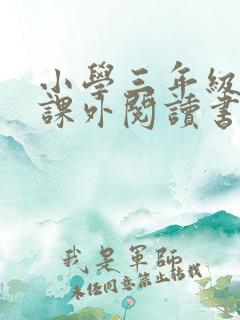 小學三年級
課外閱讀書
我是軍師
未經同意禁止轉載